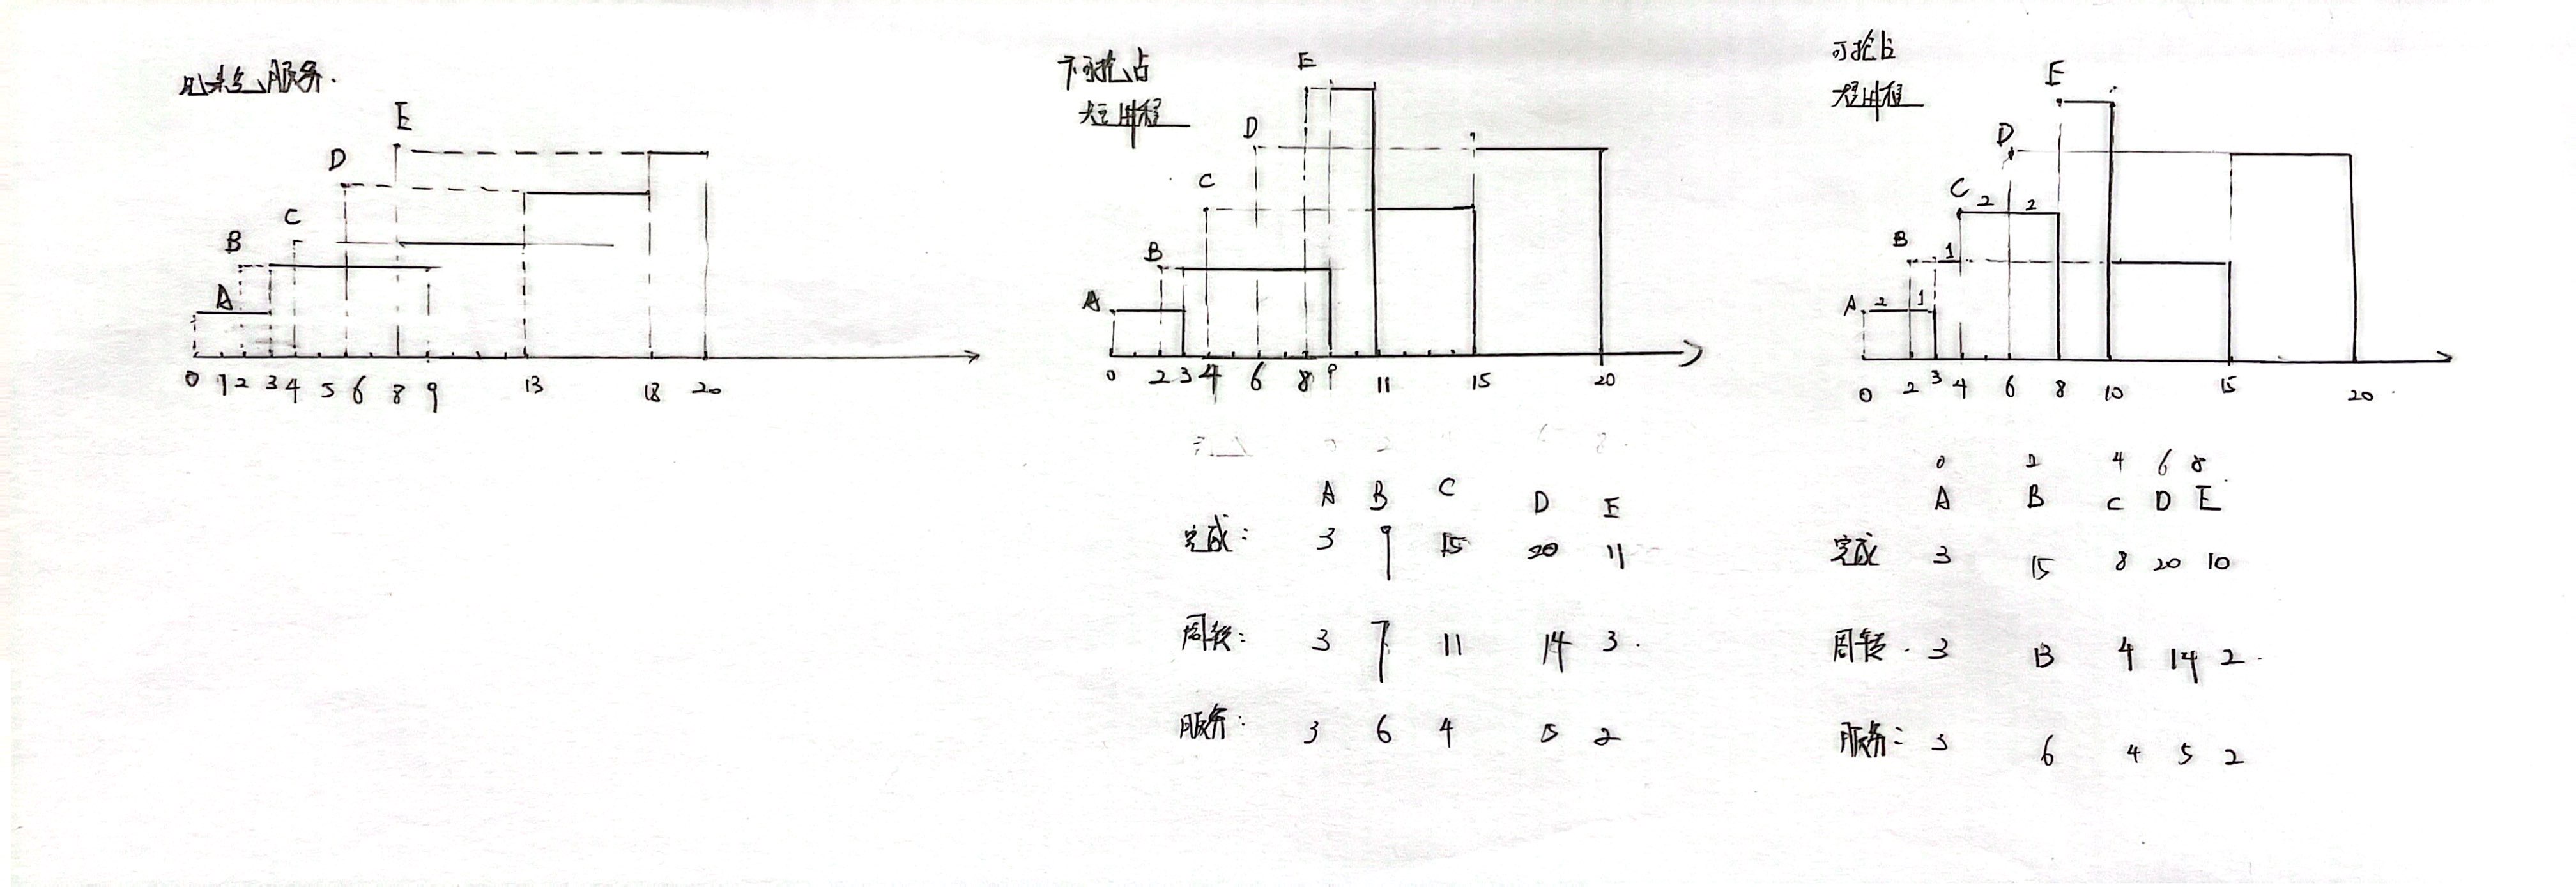 先来先服务.
E
D
C
B
A
0 1 2 3 4 5 6 8 9 13 18 20
不可抢占
短进程
E
D
C
B
A
0 2 3 4 6 8 9 11 15 20
A B C D E
完成: 3 9 15 20 11
周转: 3 7 11 14 3.
服务: 3 6 4 5 2
可抢占
短进程
E
D
C 2 2
B 1
A 2 1
0 2 3 4 6 8 10 15 20
0 2 4 6 8
A B C D E
完成 3 15 8 20 10
周转. 3 13 4 14 2.
服务: 3 6 4 5 2